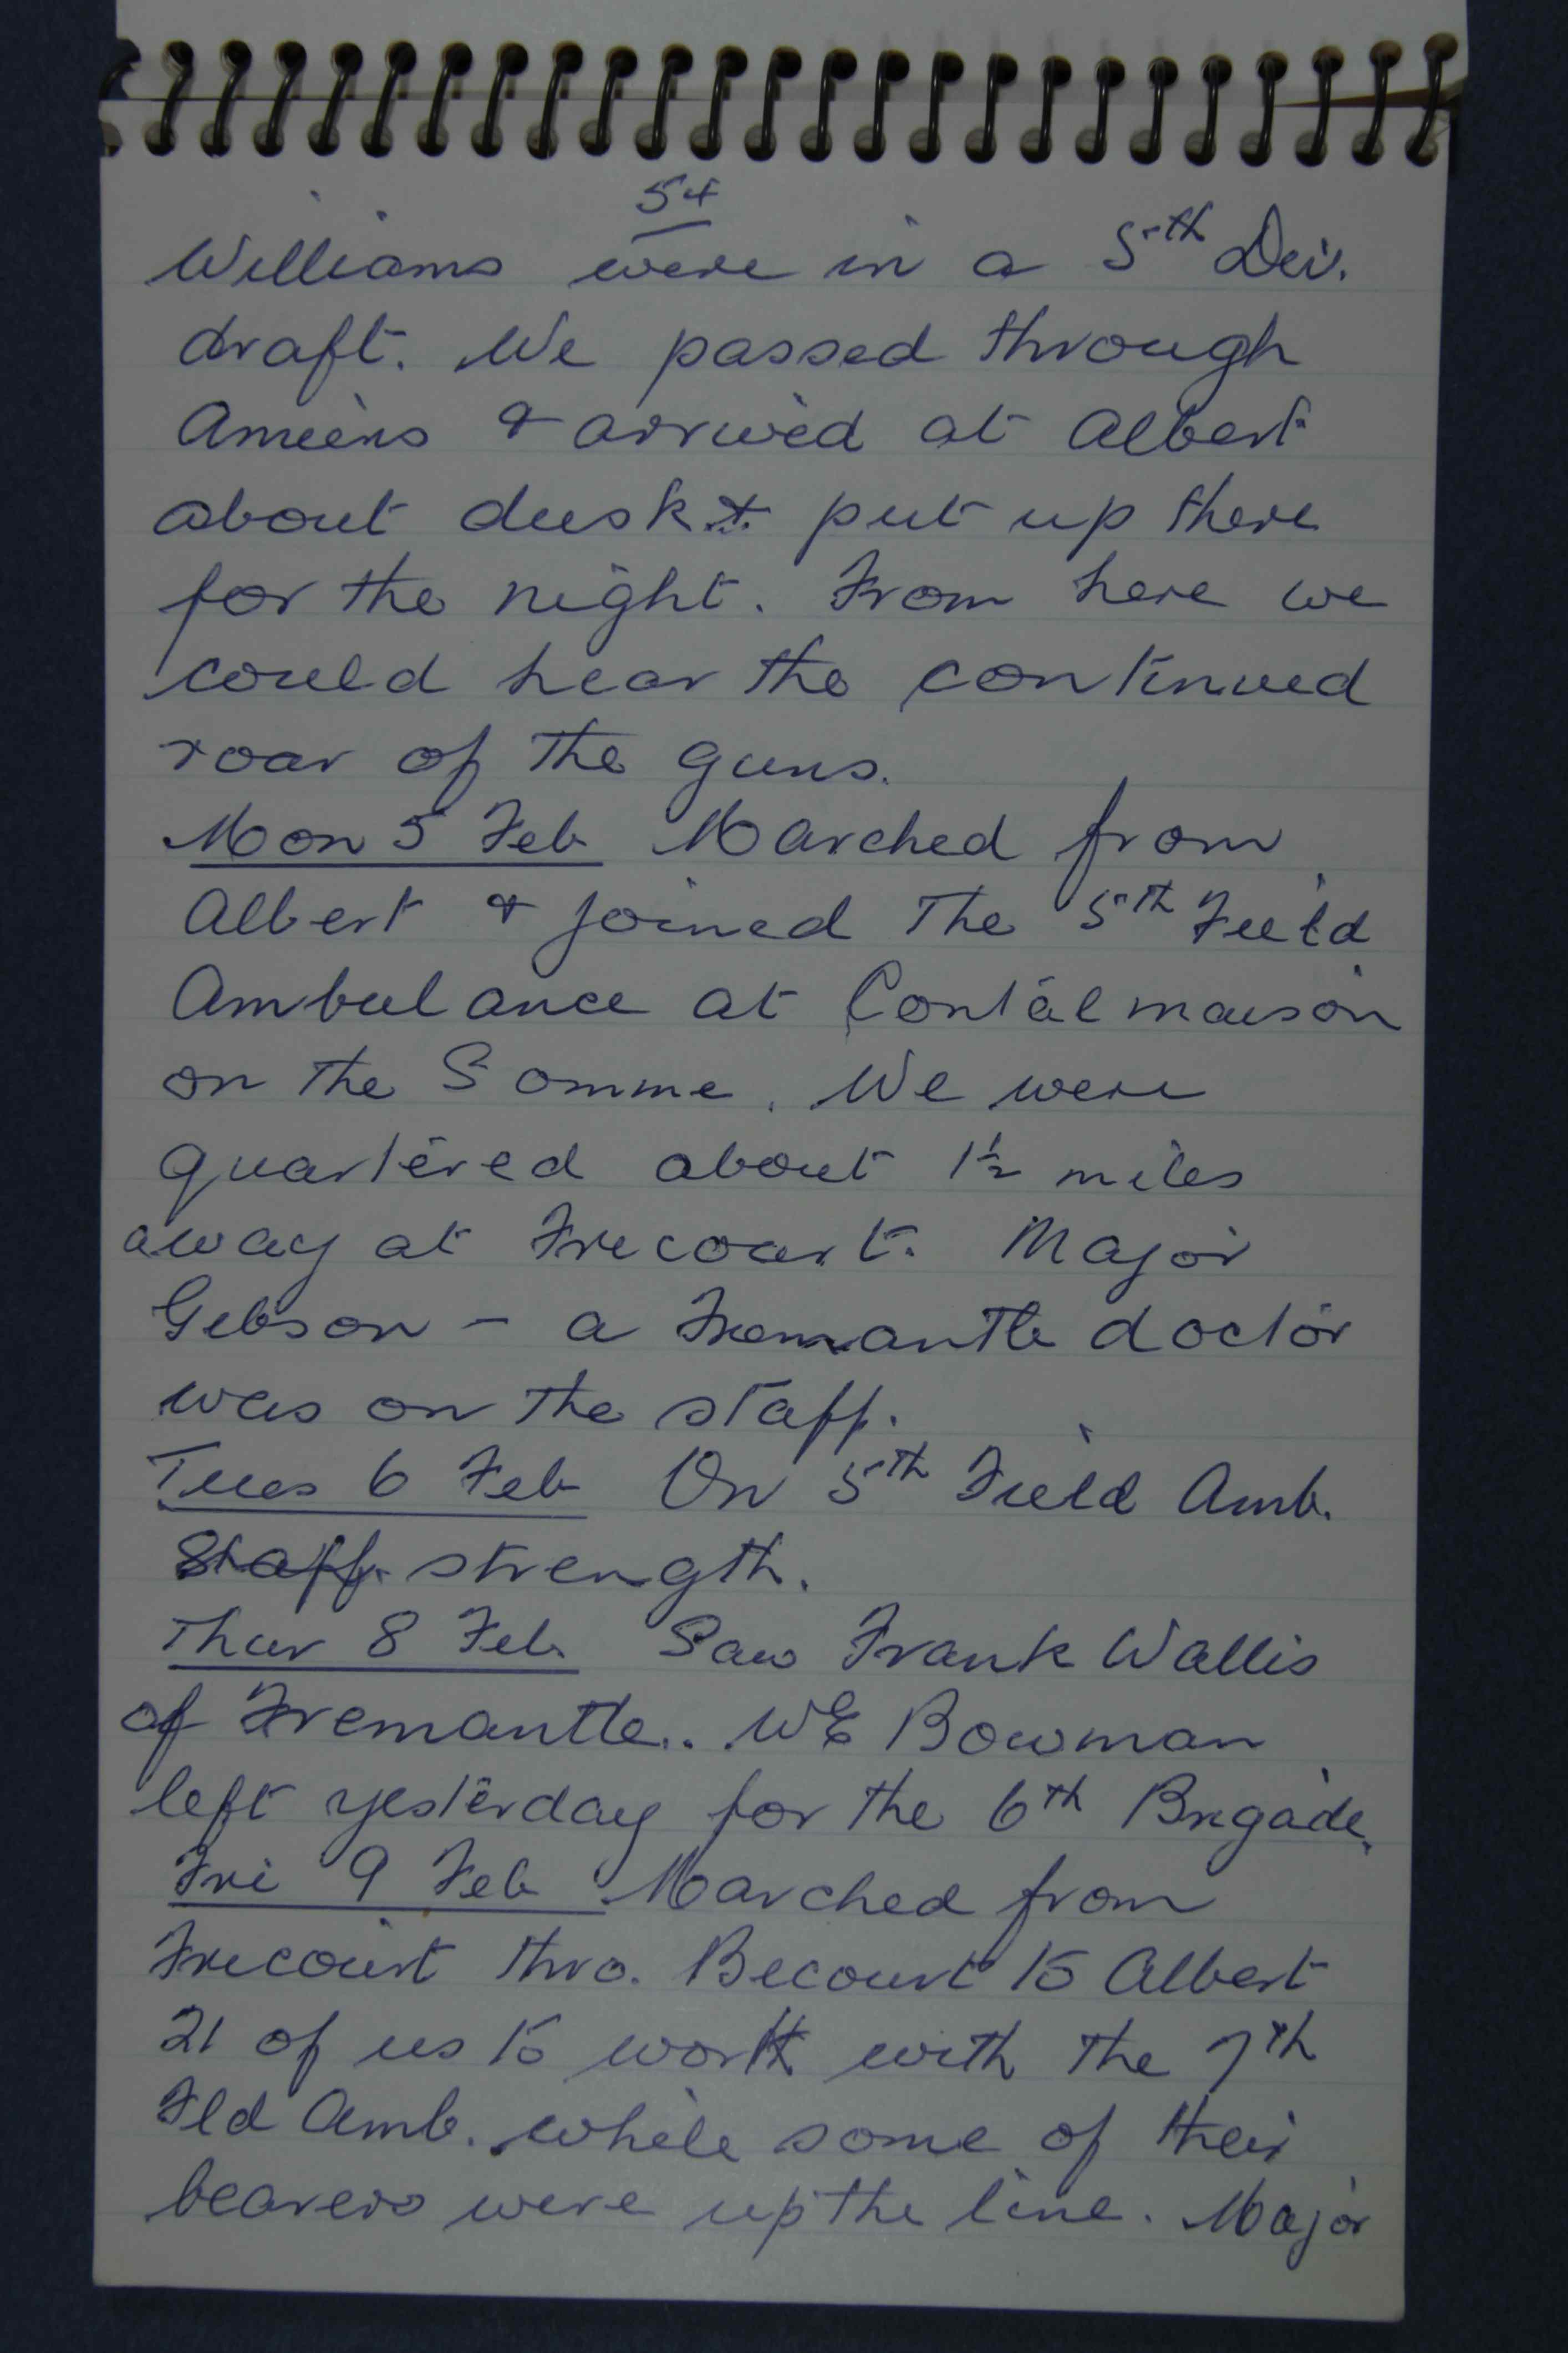 54
Williams were in a 5th Div.
draft. We passed through
Amiens & arrived at Albert
about dusk & put up there
for the night. From here we
could hear the continued
roar of the guns.
Mon 5 Feb Marched from
Albert & joined the 5th Field
Ambulance at Contalmaison
on the Somme. We were
quartered about 1½ miles
away at Fricourt. Major
Gibson - a Fremantle doctor
was on the staff.
Tues 6 Feb On 5th Field Amb.
Staff strength.
Thur 8 Feb. Saw Frank Wallis
of Fremantle.. WE Bowman
left yesterday for the 6th Brigade.
Fri 9 Feb Marched from
Fricourt thro. Becourt to Albert
21 of us to work with the 7th
Fld Amb. while some of their
bearers were up the line. Major